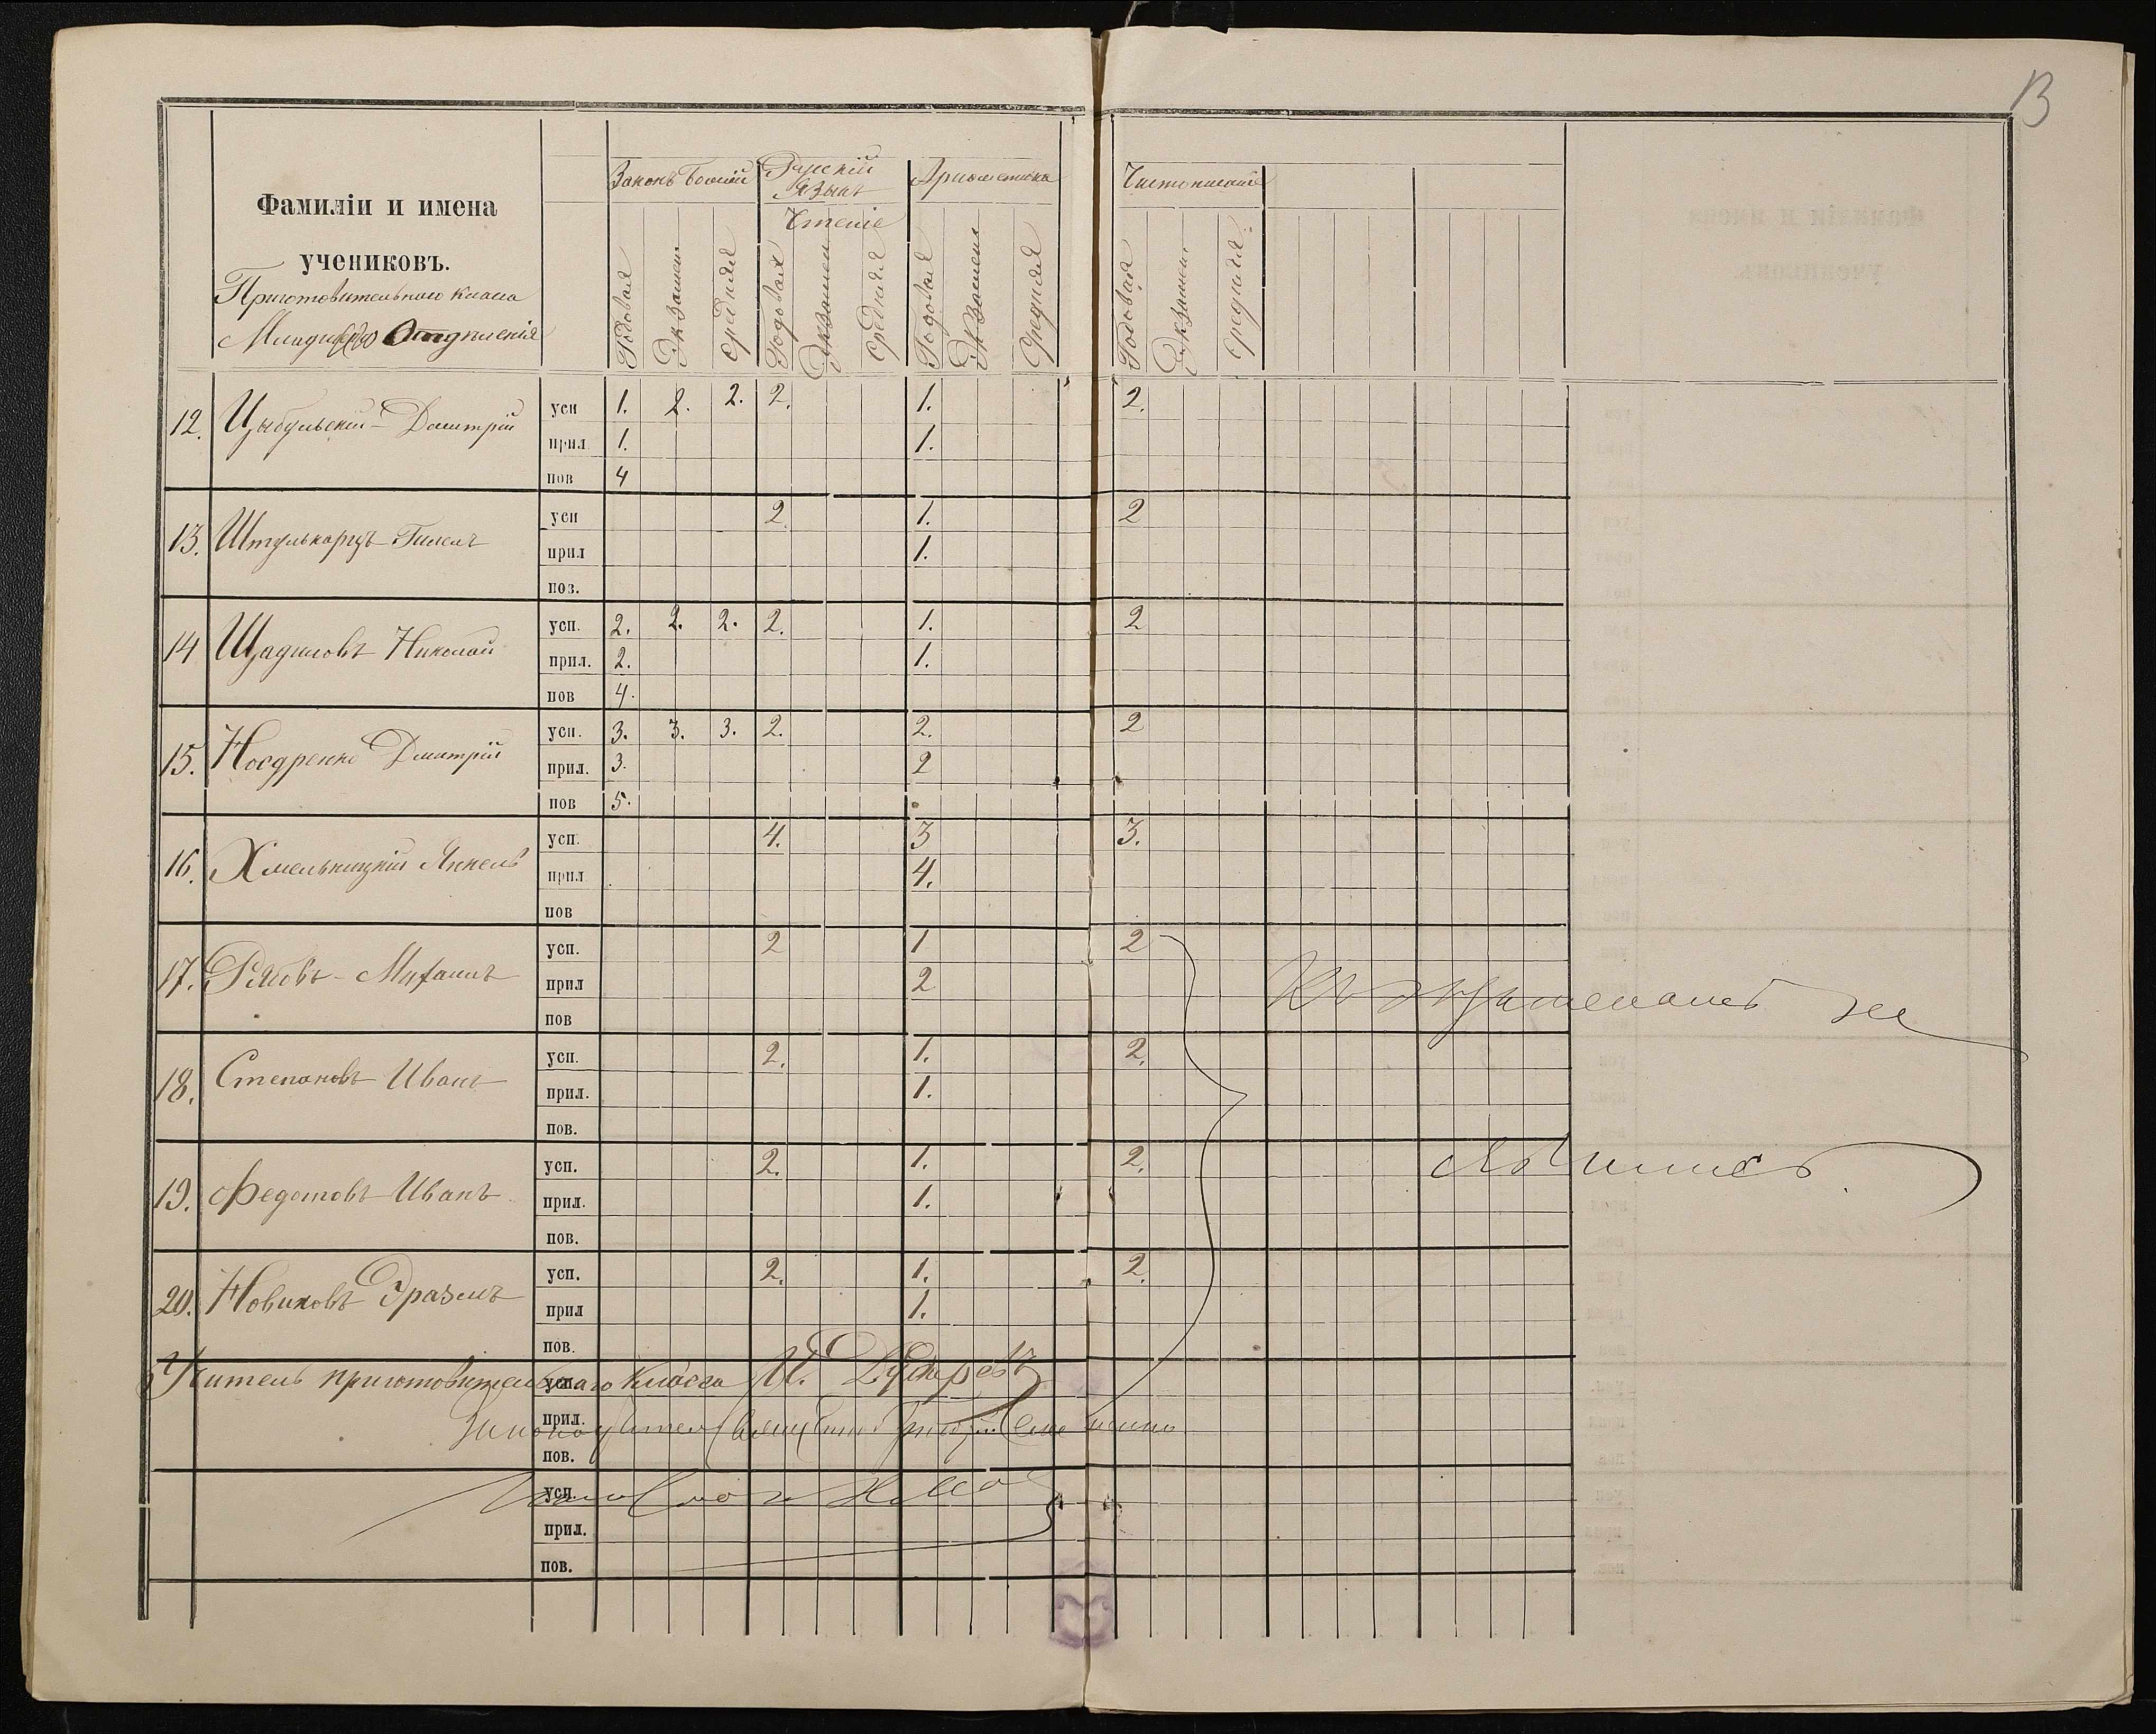 13
Фамиліи и имена
учениковъ.
Приготовительнаго класса
Младшаго Отдѣленія
Законъ Божій
Русскій Языкъ
Чтеніе
Ариѳметика
Чистописаніе
Годовая Экзамен. Средняя Годовая Экзамен. Средняя Годовая Экзамен. Средняя Годовая Экзамен. Средняя
12. Цыбульскій Дмитрій усп 1. 2. 2. 2. 1. 2.
прил 1. 1.
пов 4
13. усп 2. 1. 2
прил 1.
поз.
14 Щадиловъ Николай усп. 2. 2. 2. 2. 1. 2
прил. 2. 1.
пов 4.
15. Носдренко Дмитрій усп. 3. 3. 3. 2. 2. 2
прил. 3. 2
пов 5.
16. Хмельницкій Янкель усп. 4. 3 3.
прил 4.
пов
17. Рябовъ Михаилъ усп. 2 1 2
прил 2
пов
18. Степановъ Иванъ усп. 2. 1. 2.
прил. 1.
пов.
19. Федотовъ Иванъ усп. 2. 1. 2.
прил. 1.
пов.
20. Новиковъ Эразмъ усп. 2. 1. 2.
прил 1.
пов.
Къ экзаменамъ не
явились.
Учитель приготовительнаго класса И.
усп.
прил.
Законоучитель Священникъ
пов.
усп.
прил.
пов.